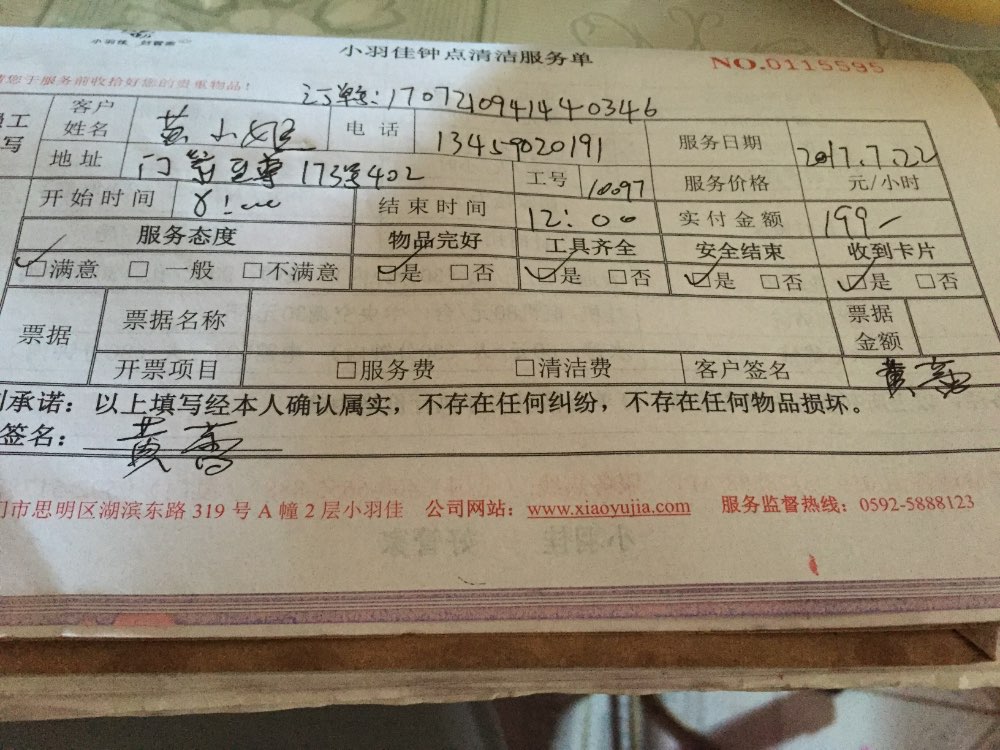 小羽佳 好管家
小羽佳钟点清洁服务单
NO.0115595
请您于服务前收拾好您的贵重物品！
订单号：1707210941440346
员工
填写
客户姓名 黄小姐 电话 13459020191 服务日期 2017.7.22
地址 173号402 工号 10097 服务价格 元/小时
开始时间 8:00 结束时间 12:00 实付金额 199-
服务态度 物品完好 工具齐全 安全结束 收到卡片
☑满意 □一般 □不满意 ☑是 □否 ☑是 □否 ☑是 □否 ☑是 □否
票据 票据名称 票据金额
开票项目 □服务费 □清洁费 客户签名 黄
承诺：以上填写经本人确认属实，不存在任何纠纷，不存在任何物品损坏。
签名：黄
门市思明区湖滨东路 319 号 A 幢 2 层小羽佳 公司网站：www.xiaoyujia.com 服务监督热线：0592-5888123